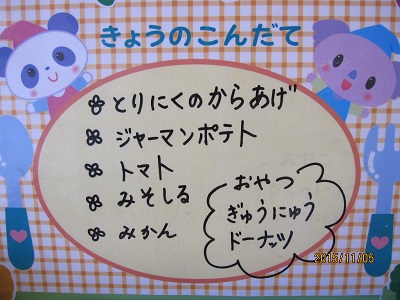 きょうのこんだて
とりにくのからあげ
ジャーマンポテト
トマト
みそしる
みかん
おやつ
ぎゅうにゅう
ドーナッツ
2015/11/05